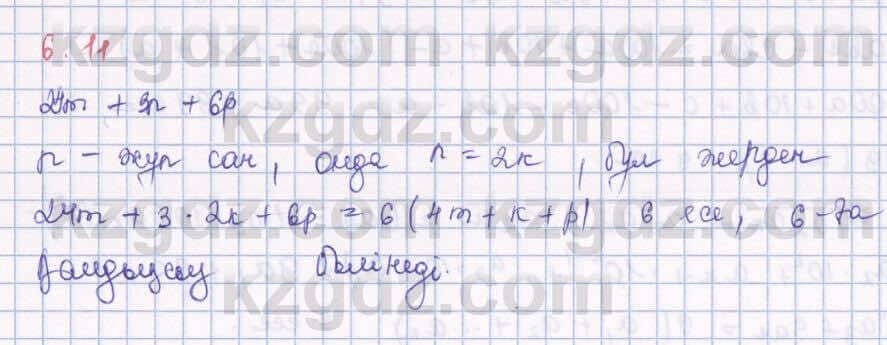 6.11
kzgdz.com kzgdz.com
24m + 3n + 6p
kzgdz.com
n - жұп сан, онда n = 2k, бұл жерден
24m + 3 · 2k + 6p = 6(4m + k + p) 6 есе, 6-ға
қалдықсыз бөлінеді.
kzgdz.com